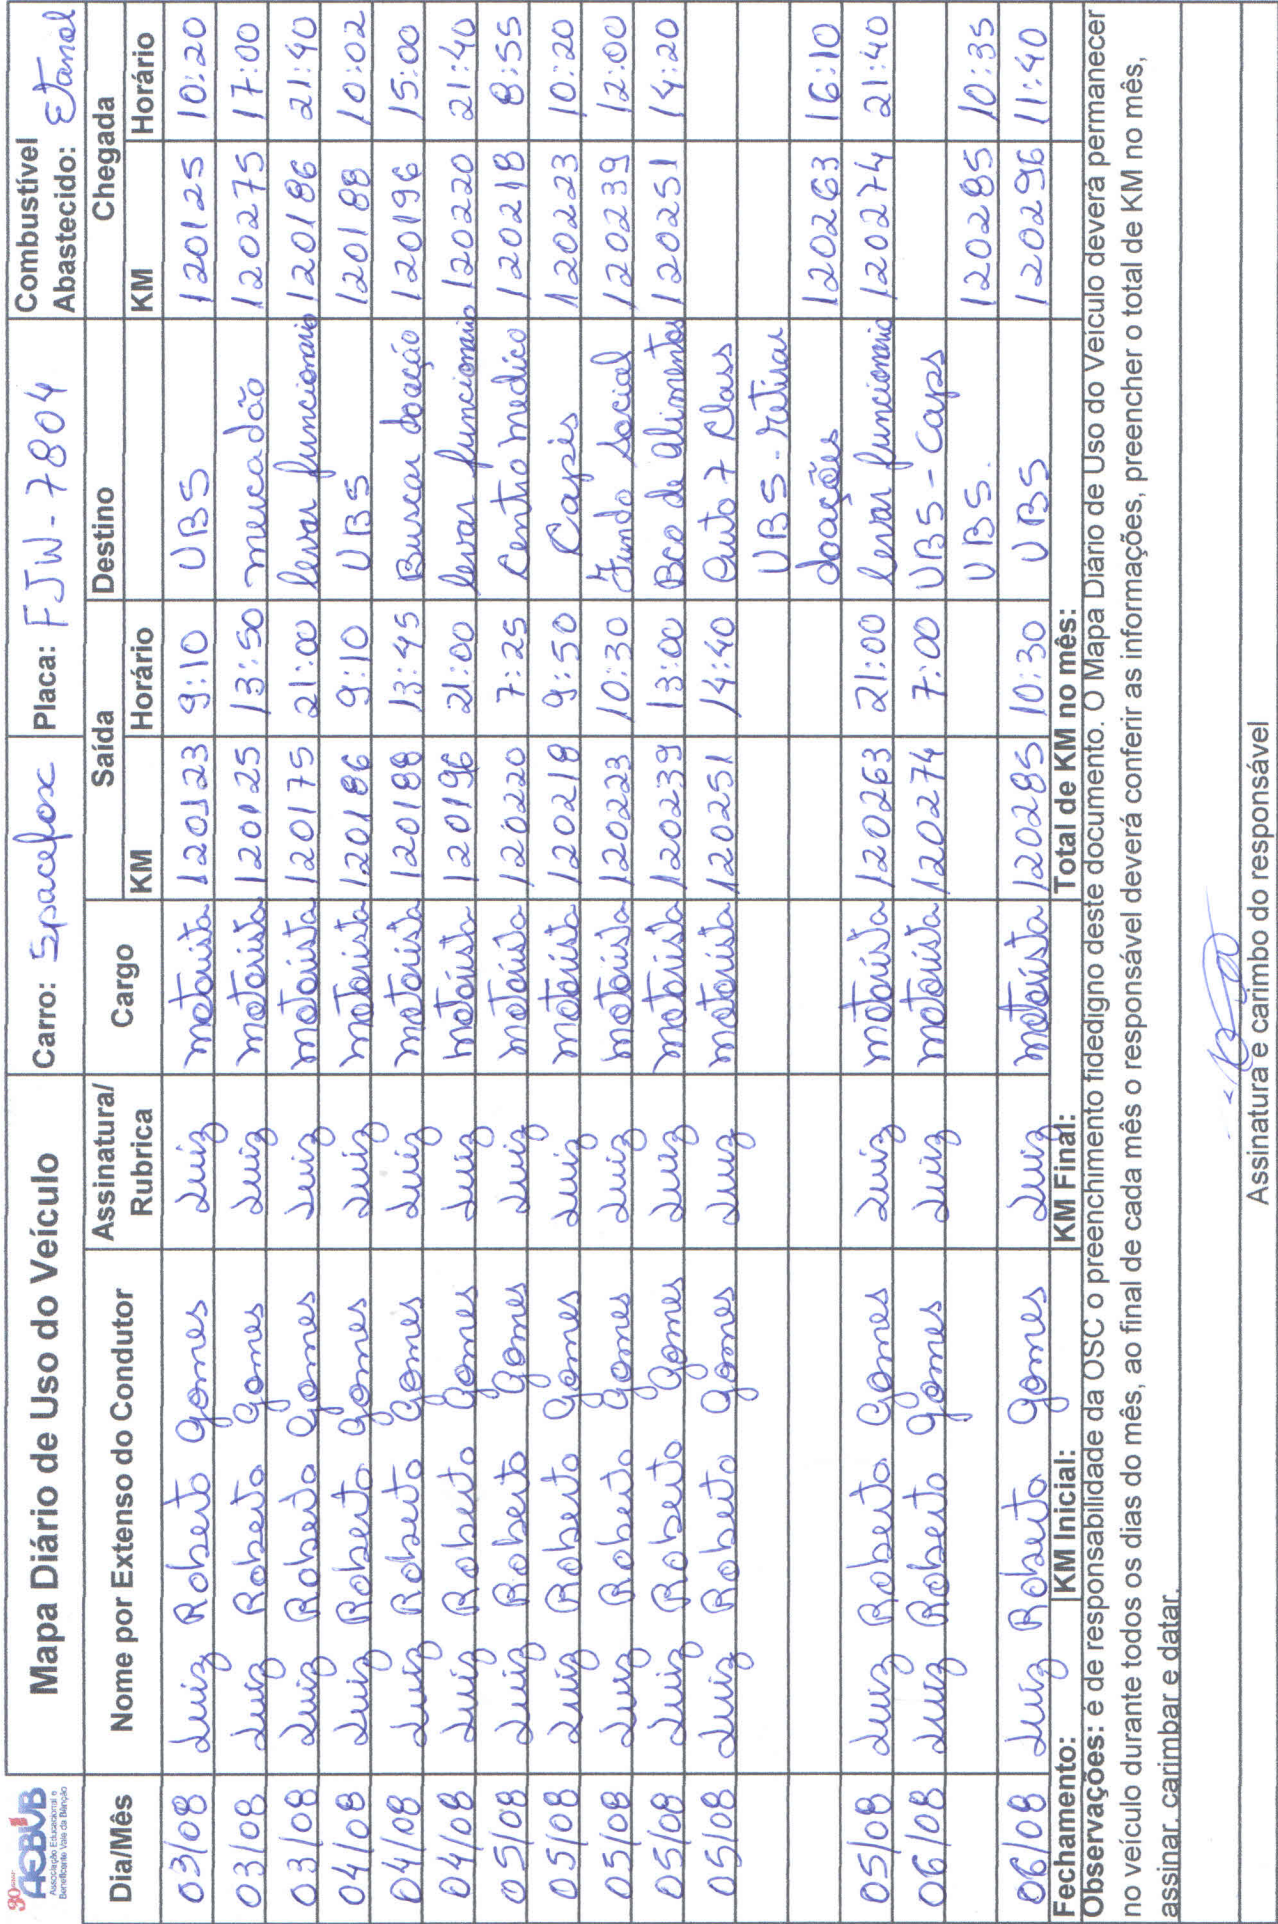 30 anos
AEBVB
Associação Educacional e
Beneficente Vale da Bênção
Mapa Diário de Uso do Veículo
Carro: Spacefox
Placa: FJW-7804
Combustível
Abastecido: Etanol
Dia/Mês Nome por Extenso do Condutor Assinatura/ Rubrica Cargo Saída Destino Chegada
KM Horário KM Horário
03/08 Luiz Roberto Gomes Luiz motorista 120123 9:10 UBS 120125 10:20
03/08 Luiz Roberto Gomes Luiz motorista 120125 13:50 mercadão 120275 17:00
03/08 Luiz Roberto Gomes Luiz motorista 120175 21:00 levar funcionario 120186 21:40
04/08 Luiz Roberto Gomes Luiz motorista 120186 9:10 UBS 120188 10:02
04/08 Luiz Roberto Gomes Luiz motorista 120188 13:45 Buscar doação 120196 15:00
04/08 Luiz Roberto Gomes Luiz motorista 120196 21:00 levar funcionario 120220 21:40
05/08 Luiz Roberto Gomes Luiz motorista 120220 7:25 Centro medico 120218 8:55
05/08 Luiz Roberto Gomes Luiz motorista 120218 9:50 Capis 120223 10:20
05/08 Luiz Roberto Gomes Luiz motorista 120223 10:30 Fundo Social 120239 12:00
05/08 Luiz Roberto Gomes Luiz motorista 120239 13:00 Bco de alimentos 120251 14:20
05/08 Luiz Roberto Gomes Luiz motorista 120251 14:40 Auto 7 Class
UBS-retirar
doações 120263 16:10
05/08 Luiz Roberto Gomes Luiz motorista 120263 21:00 levar funcionario 120274 21:40
06/08 Luiz Roberto Gomes Luiz motorista 120274 7:00 UBS-Caps
UBS. 120285 10:35
06/08 Luiz Roberto Gomes Luiz motorista 120285 10:30 UBS 120296 11:40
Fechamento: KM Inicial: KM Final: Total de KM no mês:
Observações: é de responsabilidade da OSC o preenchimento fidedigno deste documento. O Mapa Diário de Uso do Veículo deverá permanecer
no veículo durante todos os dias do mês, ao final de cada mês o responsável deverá conferir as informações, preencher o total de KM no mês,
assinar, carimbar e datar.
Assinatura e carimbo do responsável